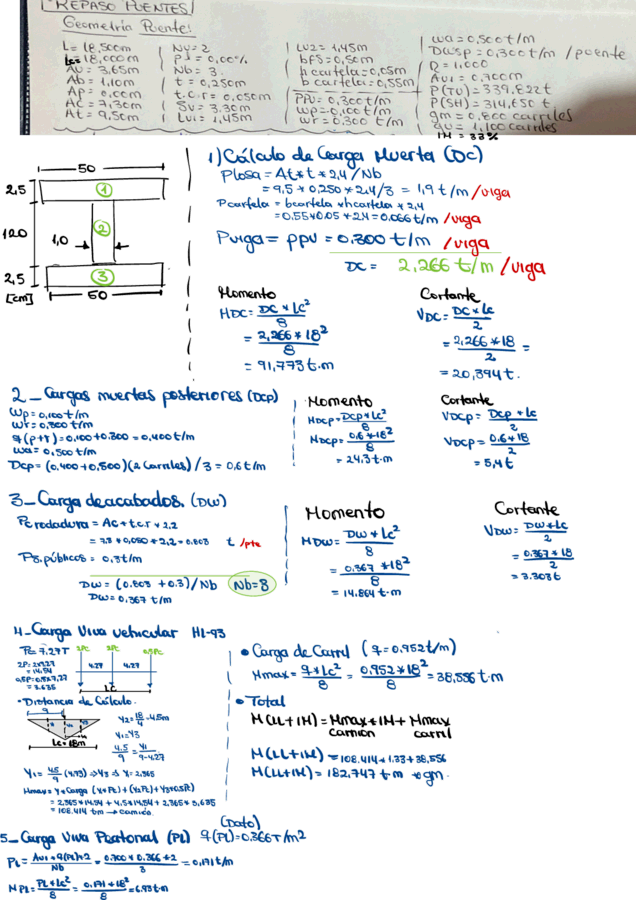 REPASO PUENTES
Geometría Puente:
L = 18,500m
Lc = 18,000m
Av = 3.65m
Ab = 1,10m
Ap = 0,00m
Ac = 7,30m
At = 9,50m
Nv = 2
Ps = 0,00%
Nb = 3.
t = 0,250m
t.c.r = 0,050m
Sv = 3.30m
Lv1 = 1,45m
Lv2 = 1,45m
bfs = 0,50m
h cartela = 0,05m
b cartela = 0,55m
PPV = 0,300t/m
wp = 0,100 t/m
wr = 0.300 t/m
wa = 0,500t/m
Dwsp = 0,300t/m /puente
R = 1.000
Av1 = 0,700m
P(TU) = 339.822t
P(SH) = 314,650 t
gm = 0,800 carriles
gv = 1,100 carriles
IM = 33%
50
2,5
1
120
1,0
2
2,5
3
[cm]
50
1) Cálculo de Carga Muerta (DC)
Plosa = At*t*2,4/Nb
= 9,5*0,250*2,4/3 = 1,9 t/m/viga
Pcartela = bcartela*hcartela*2,4
= 0,55*0,05*2,4 = 0.066t/m /viga
Pviga = ppv = 0.300 t/m /viga
DC = 2,266 t/m/viga
Momento
MDC = DC*Lc²/8
= 2,266*18²/8
= 91,773 t.m
Cortante
VDC = DC*Lc/2
= 2,266*18/2 =
= 20,394t.
2_ Cargas muertas posteriores (DCP)
wp = 0,100t/m
wr = 0,300t/m
q(p+r) = 0,100+0.300 = 0,400t/m
wa = 0,500t/m
Dcp = (0.400+0,500)(2 Carriles)/3 = 0.6t/m
Momento
MDCP = DCP*Lc²/8
MDCP = 0.6*18²/8
= 24,3t.m
Cortante
VDCP = DCP*Lc/2
VDCP = 0.6*18/2
= 5,4t
3_ Carga de acabados. (DW)
Pc rodadura = Ac*t.c.r*2.2
= 7.3*0,050*2,2 = 0.803 t /pte
Ps.públicos = 0,3t/m
DW = (0.803+0.3)/Nb Nb=3
DW = 0,367 t/m
Momento
MDW = DW*Lc²/8
= 0.367*18²/8
= 14.864 t.m
Cortante
VDW = DW*Lc/2
= 0.367*18/2
= 3.303t
4_ Carga Viva vehicular HL-93
P = 7.27T
2P = 2*7.27
= 14.54
0.5P = 0.5*7.27
= 3.635
2P 2P 0.5P
4.27 4.27
Lc
• Distancia de Cálculo.
9
Lc = 18m
Y2 = 18/4 = 4.5m
Y1 = Y3
4.5/9 = Y1/9-4.27
Y1 = 4.5/9 (4.73) => Y3 => Y = 2,365
Mmax = Y*Carga (Y1*P2) + (Y2*P2) + Y3*0.5P2
= 2,365*14.54 + 4.5*14,54 + 2,365*3,635
= 108.414 t.m → camión.
• Carga de Carril (q = 0.952t/m)
Mmax = q*Lc²/8 = 0.952*18²/8 = 38,556 t.m
• Total
M(LL+IM) = Mmax camión * IM + Mmax carril
M(LL+IM) = 108.414*1.33+38,556
M(LL+IM) = 182.747 t.m * gm.
5_ Carga Viva Peatonal (PL) q(PL) = 0.366 T/m²
(Dato)
PL = Av1*q(PL)*2/Nb = 0.700*0.366*2/3 = 0,171 t/m
MPL = PL*Lc²/8 = 0.171*18²/8 = 6.93 t.m